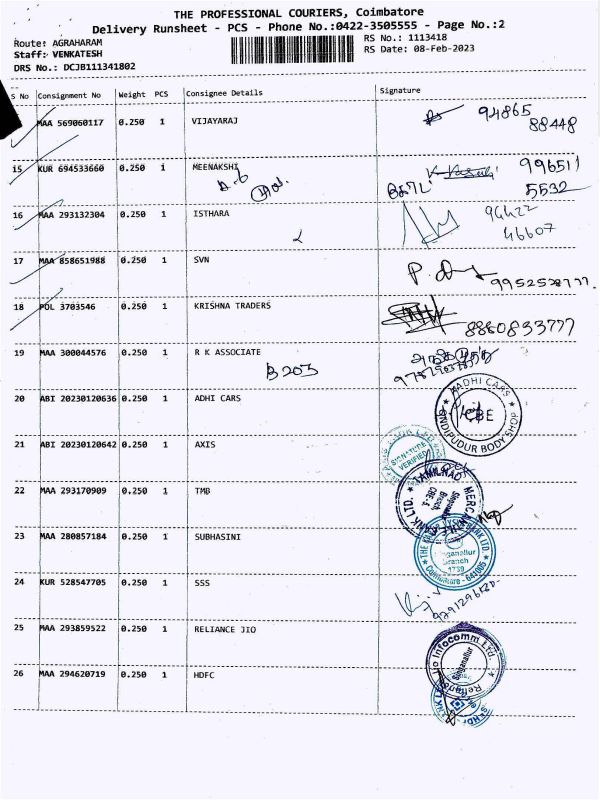 THE PROFESSIONAL COURIERS, Coimbatore
Delivery Runsheet - PCS - Phone No.:0422-3505555 - Page No.:2
Route: AGRAHARAM
RS No.: 1113418
Staff: VENKATESH
RS Date: 08-Feb-2023
DRS No.: DCJB111341802
S No Consignment No Weight PCS Consignee Details Signature
MAA 569060117 0.250 1 VIJAYARAJ 94865
88448
15 KUR 694533660 0.250 1 MEENAKSHI 996511
5532
16 MAA 293132304 0.250 1 ISTHARA 94422
46607
17 MAA 858651988 0.250 1 SVN
18 POL 3703546 0.250 1 KRISHNA TRADERS 8860833777
19 MAA 300044576 0.250 1 R K ASSOCIATE
B 203
20 ABI 20230120636 0.250 1 ADHI CARS
ADHI CARS
CBE
ONDIPUDUR BODY SHOP
21 ABI 20230120642 0.250 1 AXIS
SIGNATURE
VERIFIED
22 MAA 293170909 0.250 1 TMB
TAMILNAD MERCANTILE BANK LTD.
23 MAA 280857184 0.250 1 SUBHASINI
Singanallur
Branch
1739
Coimbatore - 641005
24 KUR 528547705 0.250 1 SSS
25 MAA 293859522 0.250 1 RELIANCE JIO
Reliance Jio Infocomm Ltd.
Singanallur
26 MAA 294620719 0.250 1 HDFC